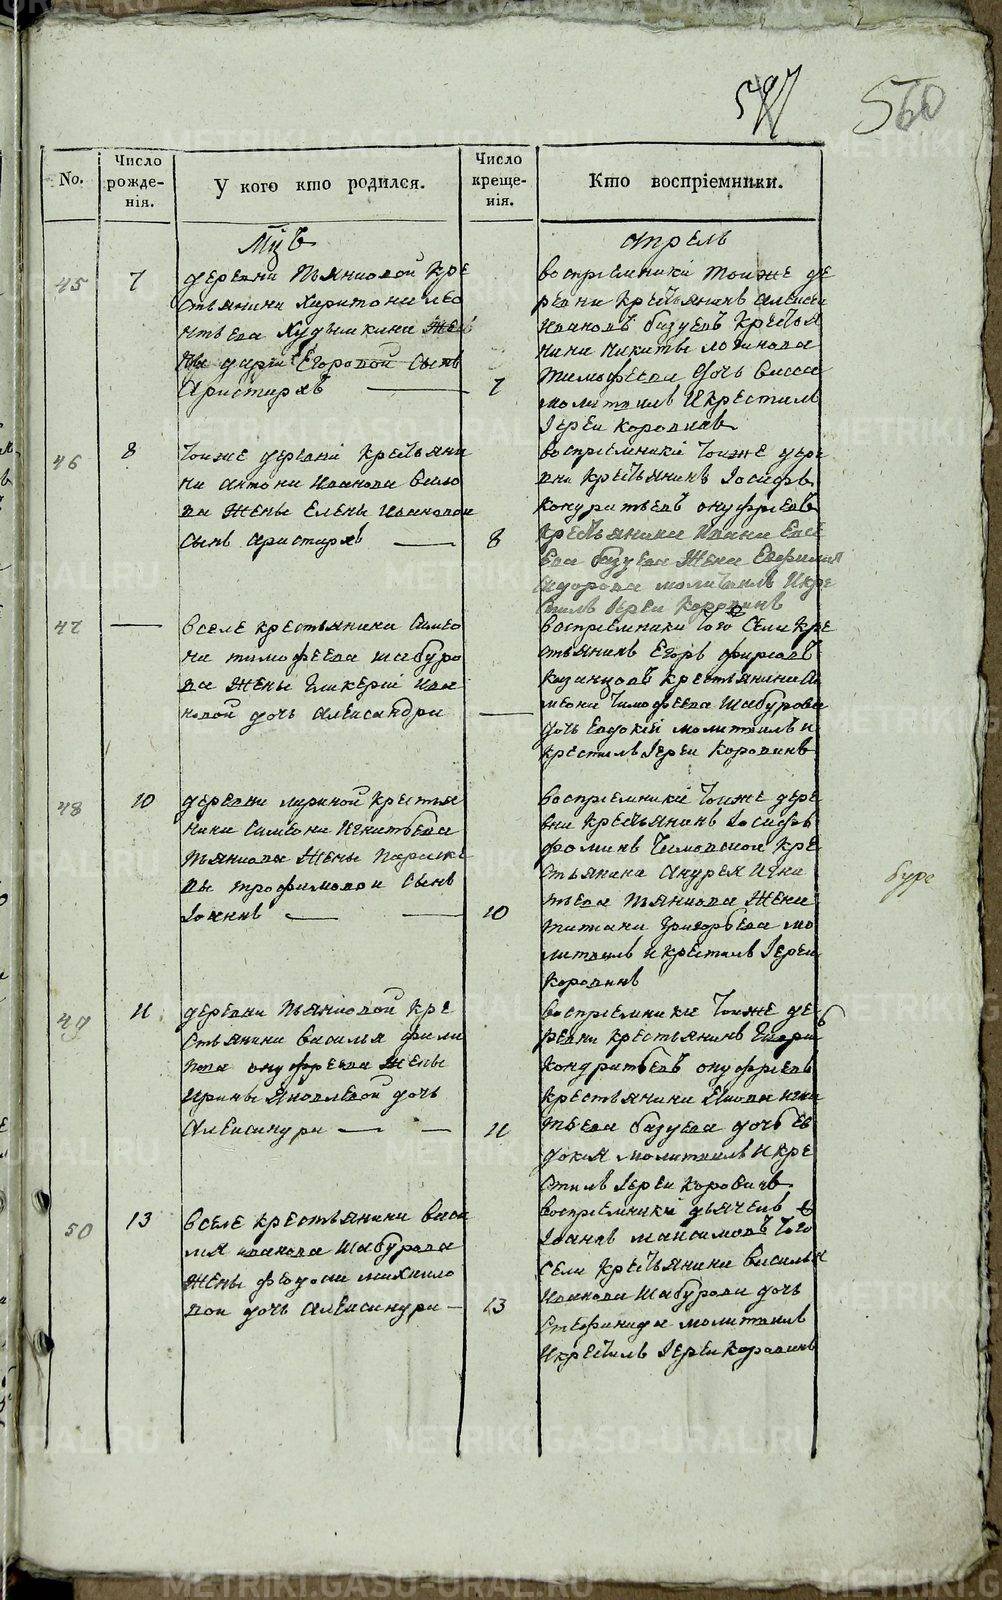 597
560
No.
Число рожденія.
У кого кто родился.
Число крещенія.
Кто воспріемники.
Мцъ
апрель
45
7
деревни Пьянковой Кре
стьянина Харитона лео
нтьева Худышкина Жен
ны дарьи Егоровой Сынъ
Аристархъ
7
воспріемники тоиже де
ревни крестьянинъ алексеи
Ивановъ базуевъ крестья
нина Никиты логинова
тимофеева дочь васса
молитвилъ И крестилъ
Іереи коровинъ
46
8
тоиже деревни крестьяни
на антона Иванова
ва Жены Елены Ивановои
сынъ аристархъ
8
воспріемники тоиже дере
вни крестьянинъ Іосифъ
кондратьевъ онуфриевъ
крестьянина Ивана Евсе
ева базуева Жена Евфимия
Сидорова молитвилъ И кре
стилъ Іереи Коровинъ
47
вселе крестьянина Симео
на тимофеева шабуро
ва Жены Гликеріи Ива
новой дочь Александра
воспріемники того Села кре
стьянинъ Егоръ фирсовъ
казанцовъ крестьянина Си
меона тимофеева Шабурова
дочь Евдокия молитвилъ и
крестилъ Іереи Коровинъ
48
10
деревни лариной крестья
нина Симеона Игнатьева
Пьянкова Жены Параске
вы трофимовои Сынъ
Іоаннъ
10
воспріемники тоиже дере
вни крестьянинъ Іосифъ
фоминъ крестьянина андрея Игна
тьева Пьянкова Жена
татиана Григорьева мо
литвилъ и крестилъ Іереи
коровинъ
буре
49
11
деревни Пьянковой кре
стьянина василя фили
пова онуфреева Жены
Ирины Яковлевой дочь
Александра
11
воспріемники тоиже де
ревни крестьянинъ Егоръ
кондратьевъ онуфриевъ
крестьянина Якова Игна
тьева базуева дочь Ев
докия молитвилъ И кре
стилъ Іереи коровинъ
50
13
вселе крестьянина васи
лия иванова Шабурова
жены феодосии михаило
вои дочь александра
13
воспріемники дьячекъ
Іоаннъ максимовъ того
села крестьянина василья
Иванова Шабурова дочь
Стефанида молитвилъ
И крестилъ Іереи коровинъ
METRIKI.GASO-URAL.RU